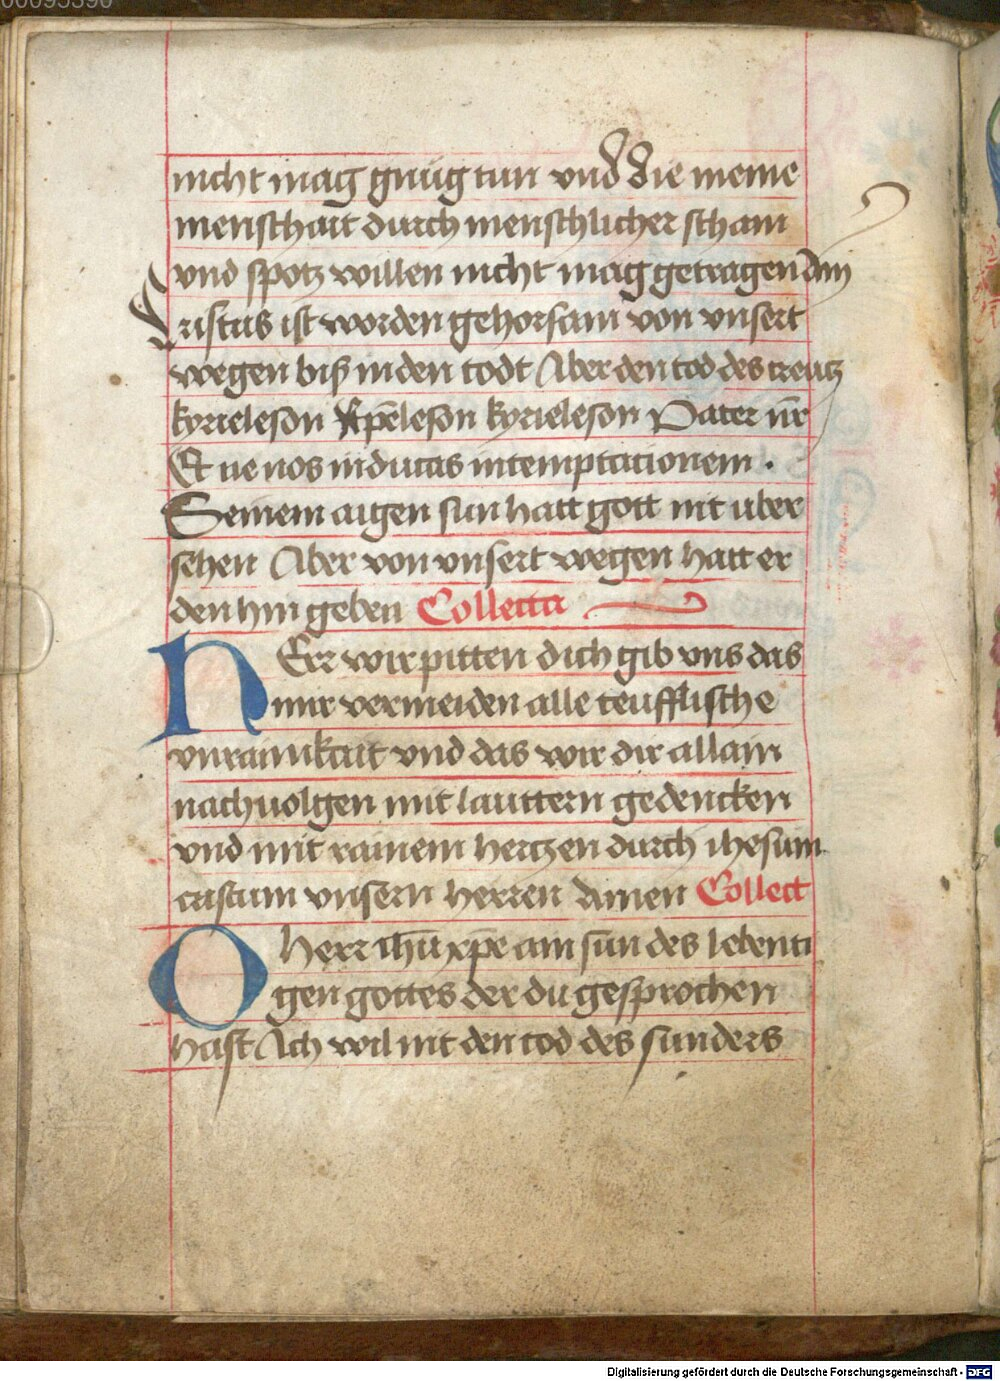 nicht mag gnüg tun vnd die meine
menschait durch menschlicher scham
vnd spotz willen nicht mag getragen Am
Cristus ist worden gehorsam von vnsert
wegen biß in den todt Aber den tod des creutz
kyrieleson xp̄eleson kyrieleson Pater nr̄
Et ne nos inducas in temptacionem .
Seinem aigen sun hatt gott nit uber
sehen Aber von vnsert wegen hatt er
den hin geben Collecta
HErr wir pitten dich gib vns das
wir vermeiden alle teufflische
vnrainikait vnd das wir dir allain
nachuolgen mit lauttern gedencken
vnd mit rainem hertzen durch ihesum
cristum vnsern herren Amen Collect
O herr ihū xp̄e ain sun des lebenti
gen gottes der du gesprochen
hast Ich wil nit den tod des sunders
Digitalisierung gefördert durch die Deutsche Forschungsgemeinschaft - DFG